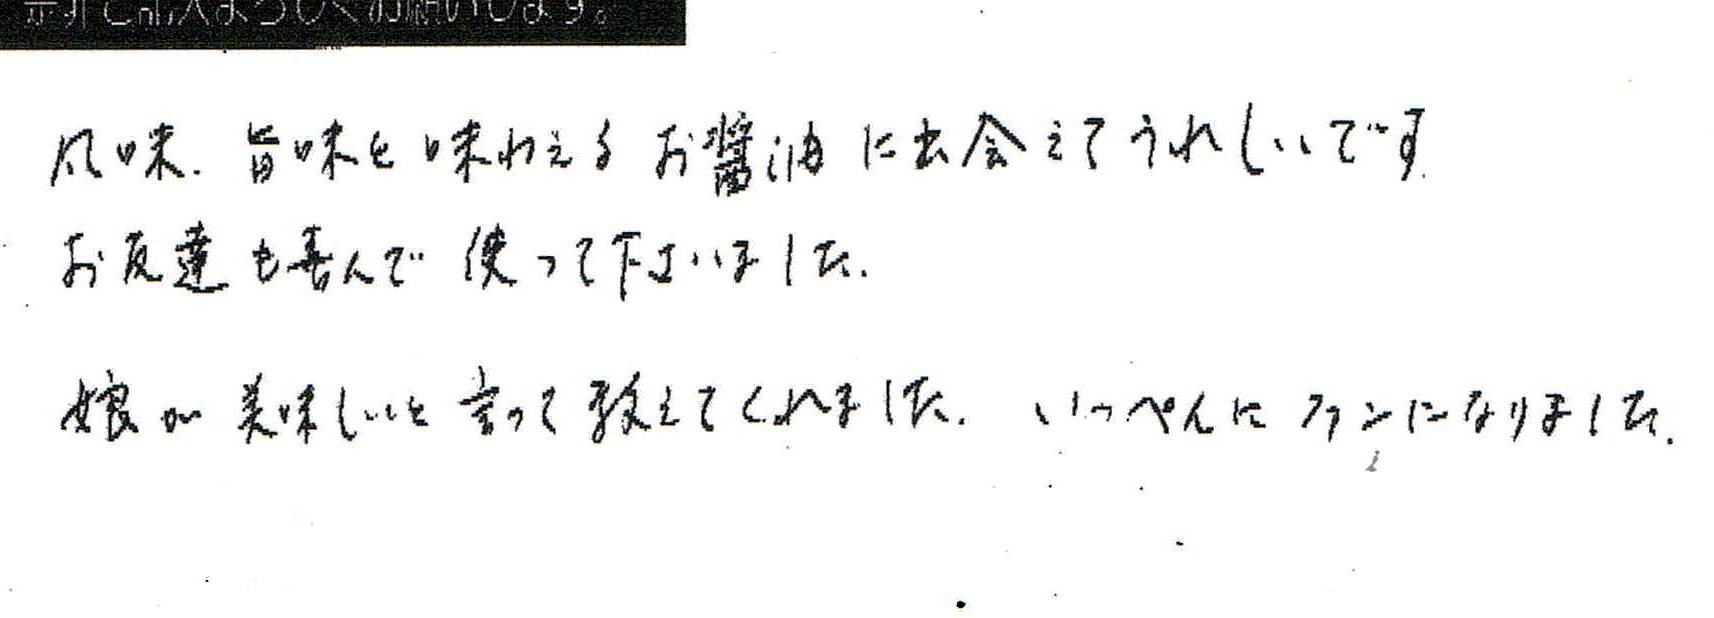 是非ご記入よろしくお願いします。
風味、旨味を味わえるお醤油に出会えてうれしいです.
お友達も喜んで使って下さいました.
娘が美味しいと言って教えてくれました. いっぺんにファンになりました.